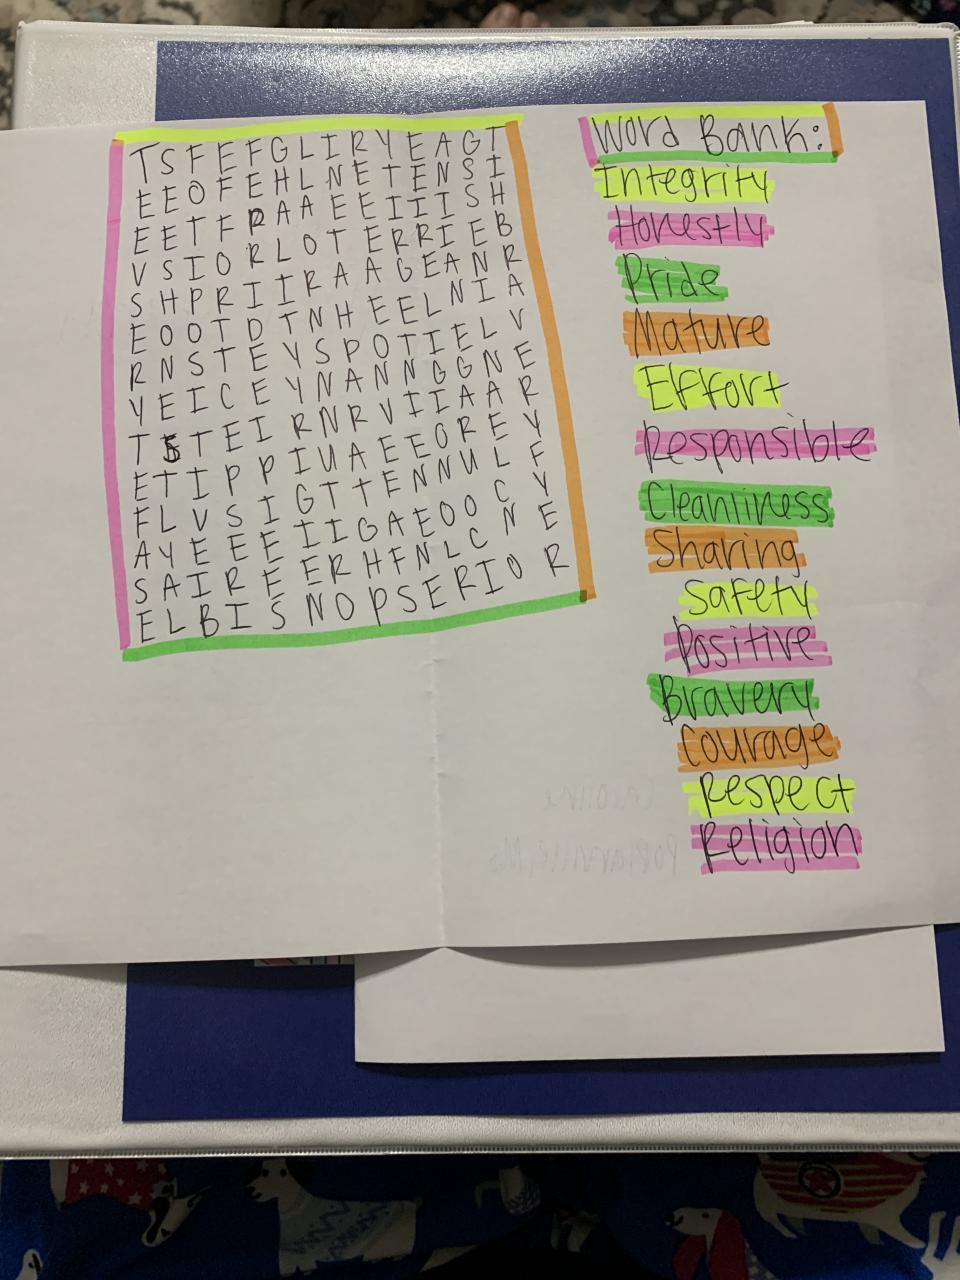 T S F E F G L I R Y E A G T
E E O F E H L N E T E N S I
E E T F R A A E E I I I S H
V S I O R L O T E R R I E B
S H P R I I R A A G E A N R
E O O T D T N H E E L N I A
R N S T E Y S P O T I E L V
Y E I C E Y N A N N G G N E
T S T E I R N R V I I A A R
E T I P P I U A E E O R E Y
F L V S I G T T E N N U L F
A Y E E E I I G A E O O C Y
S A I R E E R H F N L C N E
E L B I S N O P S E R I O R
Word Bank:
Integrity
Honestly
Pride
Mature
Effort
Responsible
Cleanliness
Sharing
Safety
Positive
Bravery
Courage
Respect
Religion